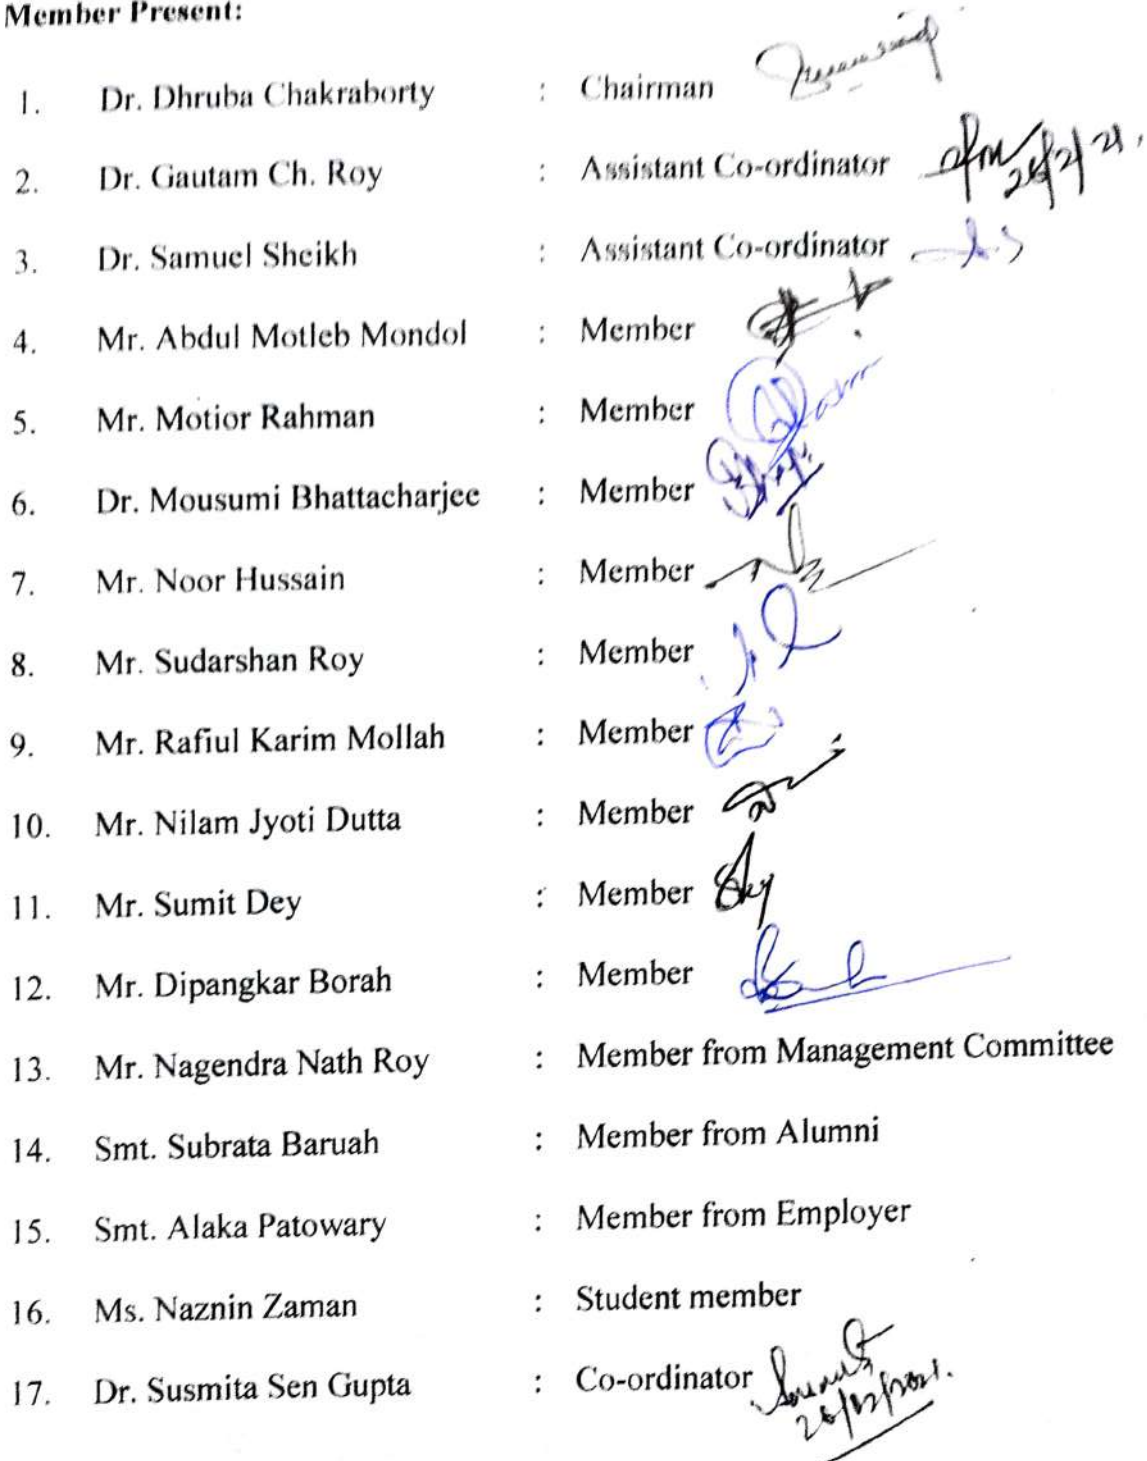 Member Present:
1. Dr. Dhruba Chakraborty : Chairman
2. Dr. Gautam Ch. Roy : Assistant Co-ordinator 26/2/21.
3. Dr. Samuel Sheikh : Assistant Co-ordinator
4. Mr. Abdul Motleb Mondol : Member
5. Mr. Motior Rahman : Member
6. Dr. Mousumi Bhattacharjee : Member
7. Mr. Noor Hussain : Member
8. Mr. Sudarshan Roy : Member
9. Mr. Rafiul Karim Mollah : Member
10. Mr. Nilam Jyoti Dutta : Member
11. Mr. Sumit Dey : Member
12. Mr. Dipangkar Borah : Member
13. Mr. Nagendra Nath Roy : Member from Management Committee
14. Smt. Subrata Baruah : Member from Alumni
15. Smt. Alaka Patowary : Member from Employer
16. Ms. Naznin Zaman : Student member
17. Dr. Susmita Sen Gupta : Co-ordinator
26/02/2021.